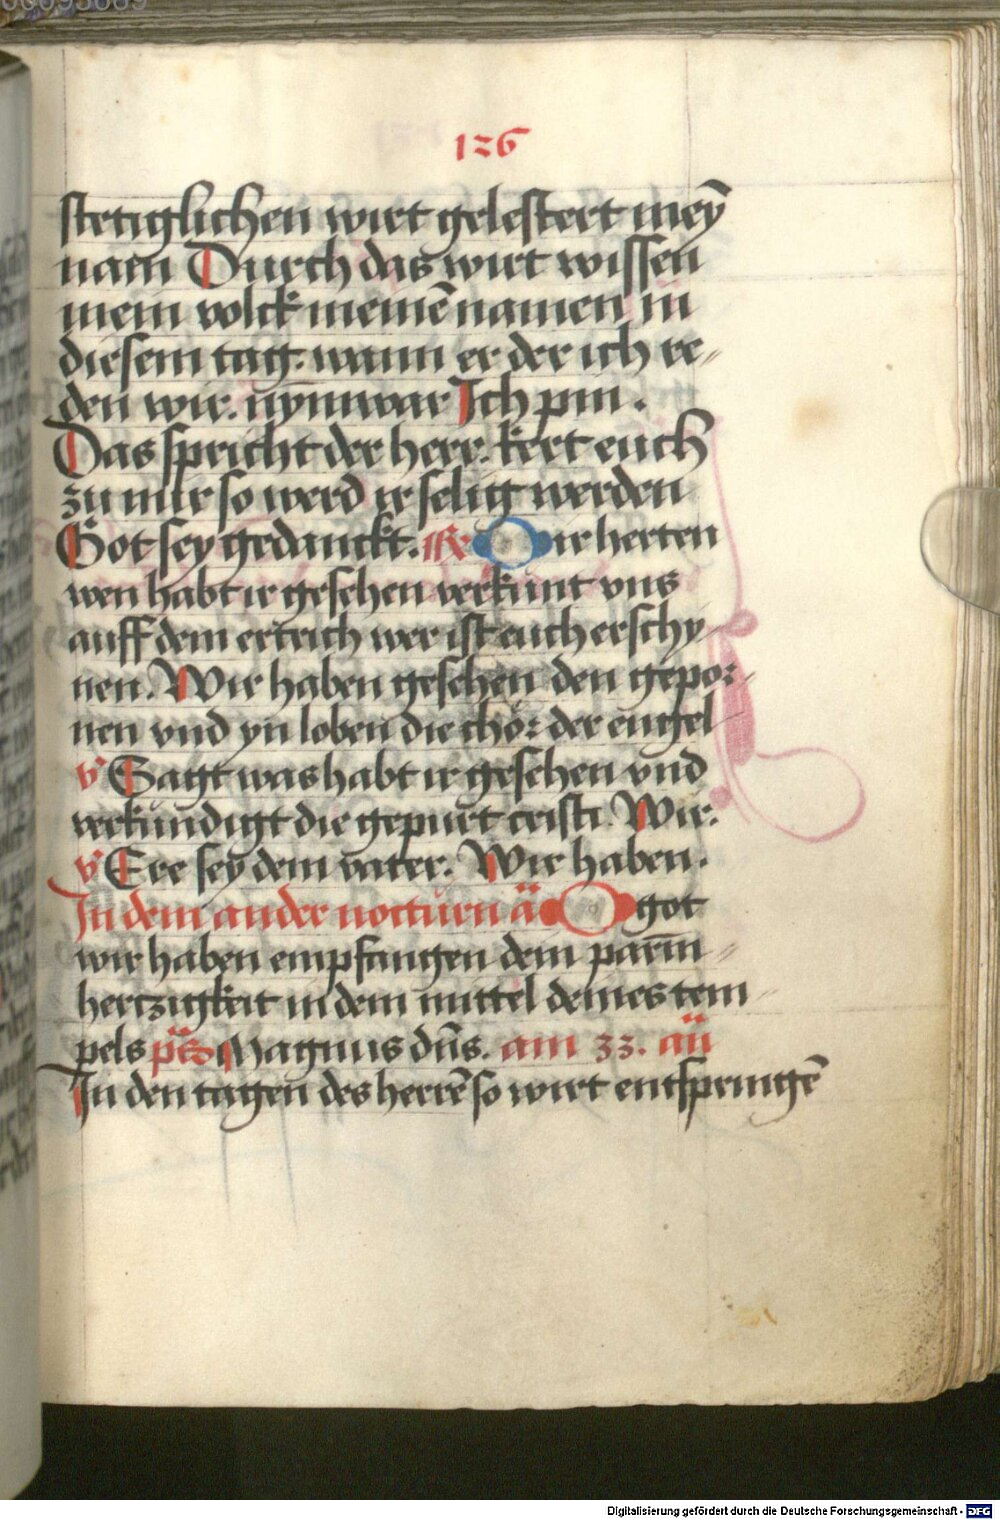 126
stetiglichen wirt gelestert meȳ
nam Durch das wirt wissen
mein volck meinē namen in
diesem tag. wann er der ich re-
den wir. nȳmwar Ich pin.
Das spricht der herr. kert euch
zu mir so werd ir selig werden
Got sey gedanckt. R O ir herten
wen habt ir gesehen verkunt vns
auff dem ertrich wer ist euch erschy-
nen. Wir haben gesehen den gepor-
nen vnd yn loben die chor der engel
v Sagt was habt ir gesehen vnd
verkundigt die gepurt cristi. Wir.
v Ere sey dem vater. Wir haben.
In dem ander notturn ā O got
wir haben empfangen dein parm-
hertzigkeit in dem mittel deines tem-
pels ps Magnus dn̄s. am 33. an̄
In den tagen des herrē so wirt entspringē
Digitalisierung gefördert durch die Deutsche Forschungsgemeinschaft - DFG